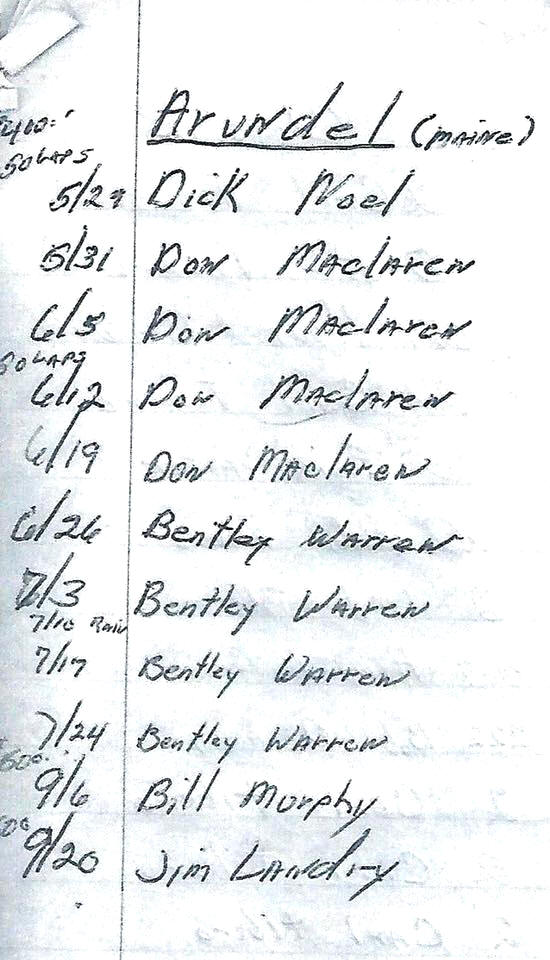 Arundel (Maine)
50 LAPS
5/29 Dick Noel
5/31 Don Maclaren
6/5 Don Maclaren
50 LAPS
6/12 Don Maclaren
6/19 Don Maclaren
6/26 Bentley Warren
7/3 Bentley Warren
7/10 Rain
7/17 Bentley Warren
7/24 Bentley Warren
9/6 Bill Murphy
9/20 Jim Landry